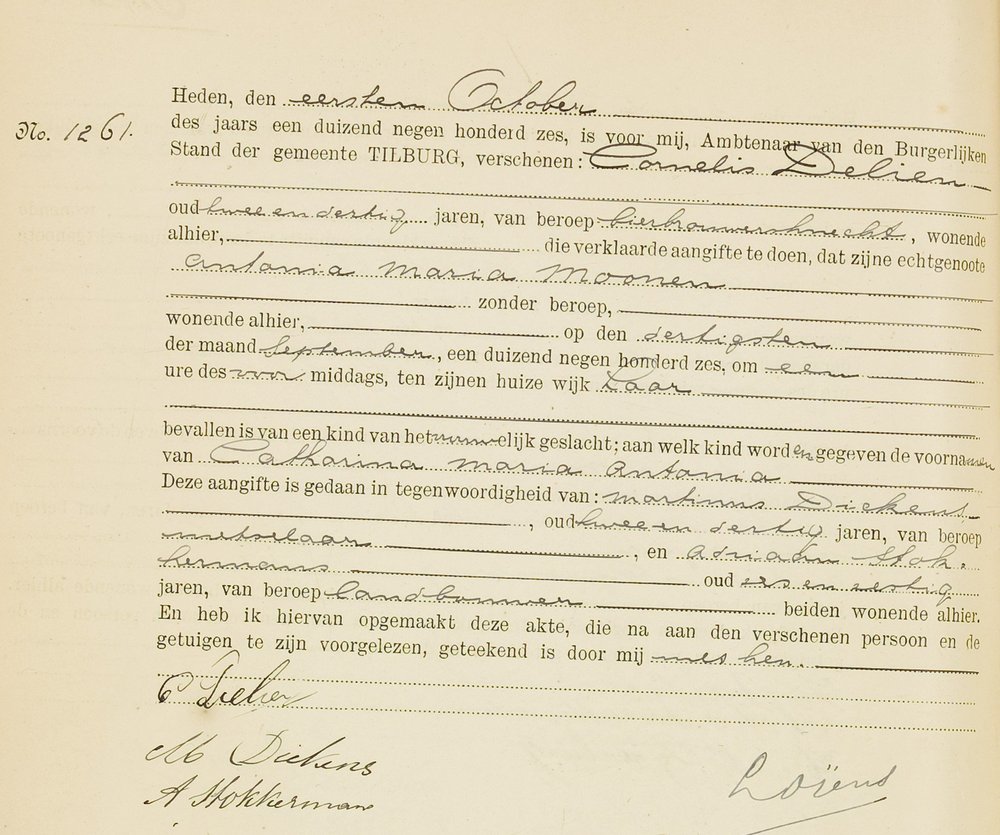 No. 1261.
Heden, den eersten October
des jaars een duizend negen honderd zes, is voor mij, Ambtenaar van den Burgerlijken
Stand der gemeente TILBURG, verschenen: Cornelis Delien
oud twee en dertig jaren, van beroep bierbrouwersknecht, wonende
alhier, die verklaarde aangifte te doen, dat zijne echtgenoote
Antonia Maria Moonen
zonder beroep,
wonende alhier, op den dertigsten
der maand September, een duizend negen honderd zes, om een
ure des voor middags, ten zijnen huize wijk Laar
bevallen is van een kind van het vrouwelijk geslacht; aan welk kind worden gegeven de voornamen
van Catharina Maria Antonia
Deze aangifte is gedaan in tegenwoordigheid van: Martinus Dickens
, oud twee en dertig jaren, van beroep
metselaar, en Adriaan Stok-
kermans oud en veertig
jaren, van beroep landbouwer beiden wonende alhier.
En heb ik hiervan opgemaakt deze akte, die na aan den verschenen persoon en de
getuigen te zijn voorgelezen, geteekend is door mij met hen.
C
M Dickens
A Stokkermans